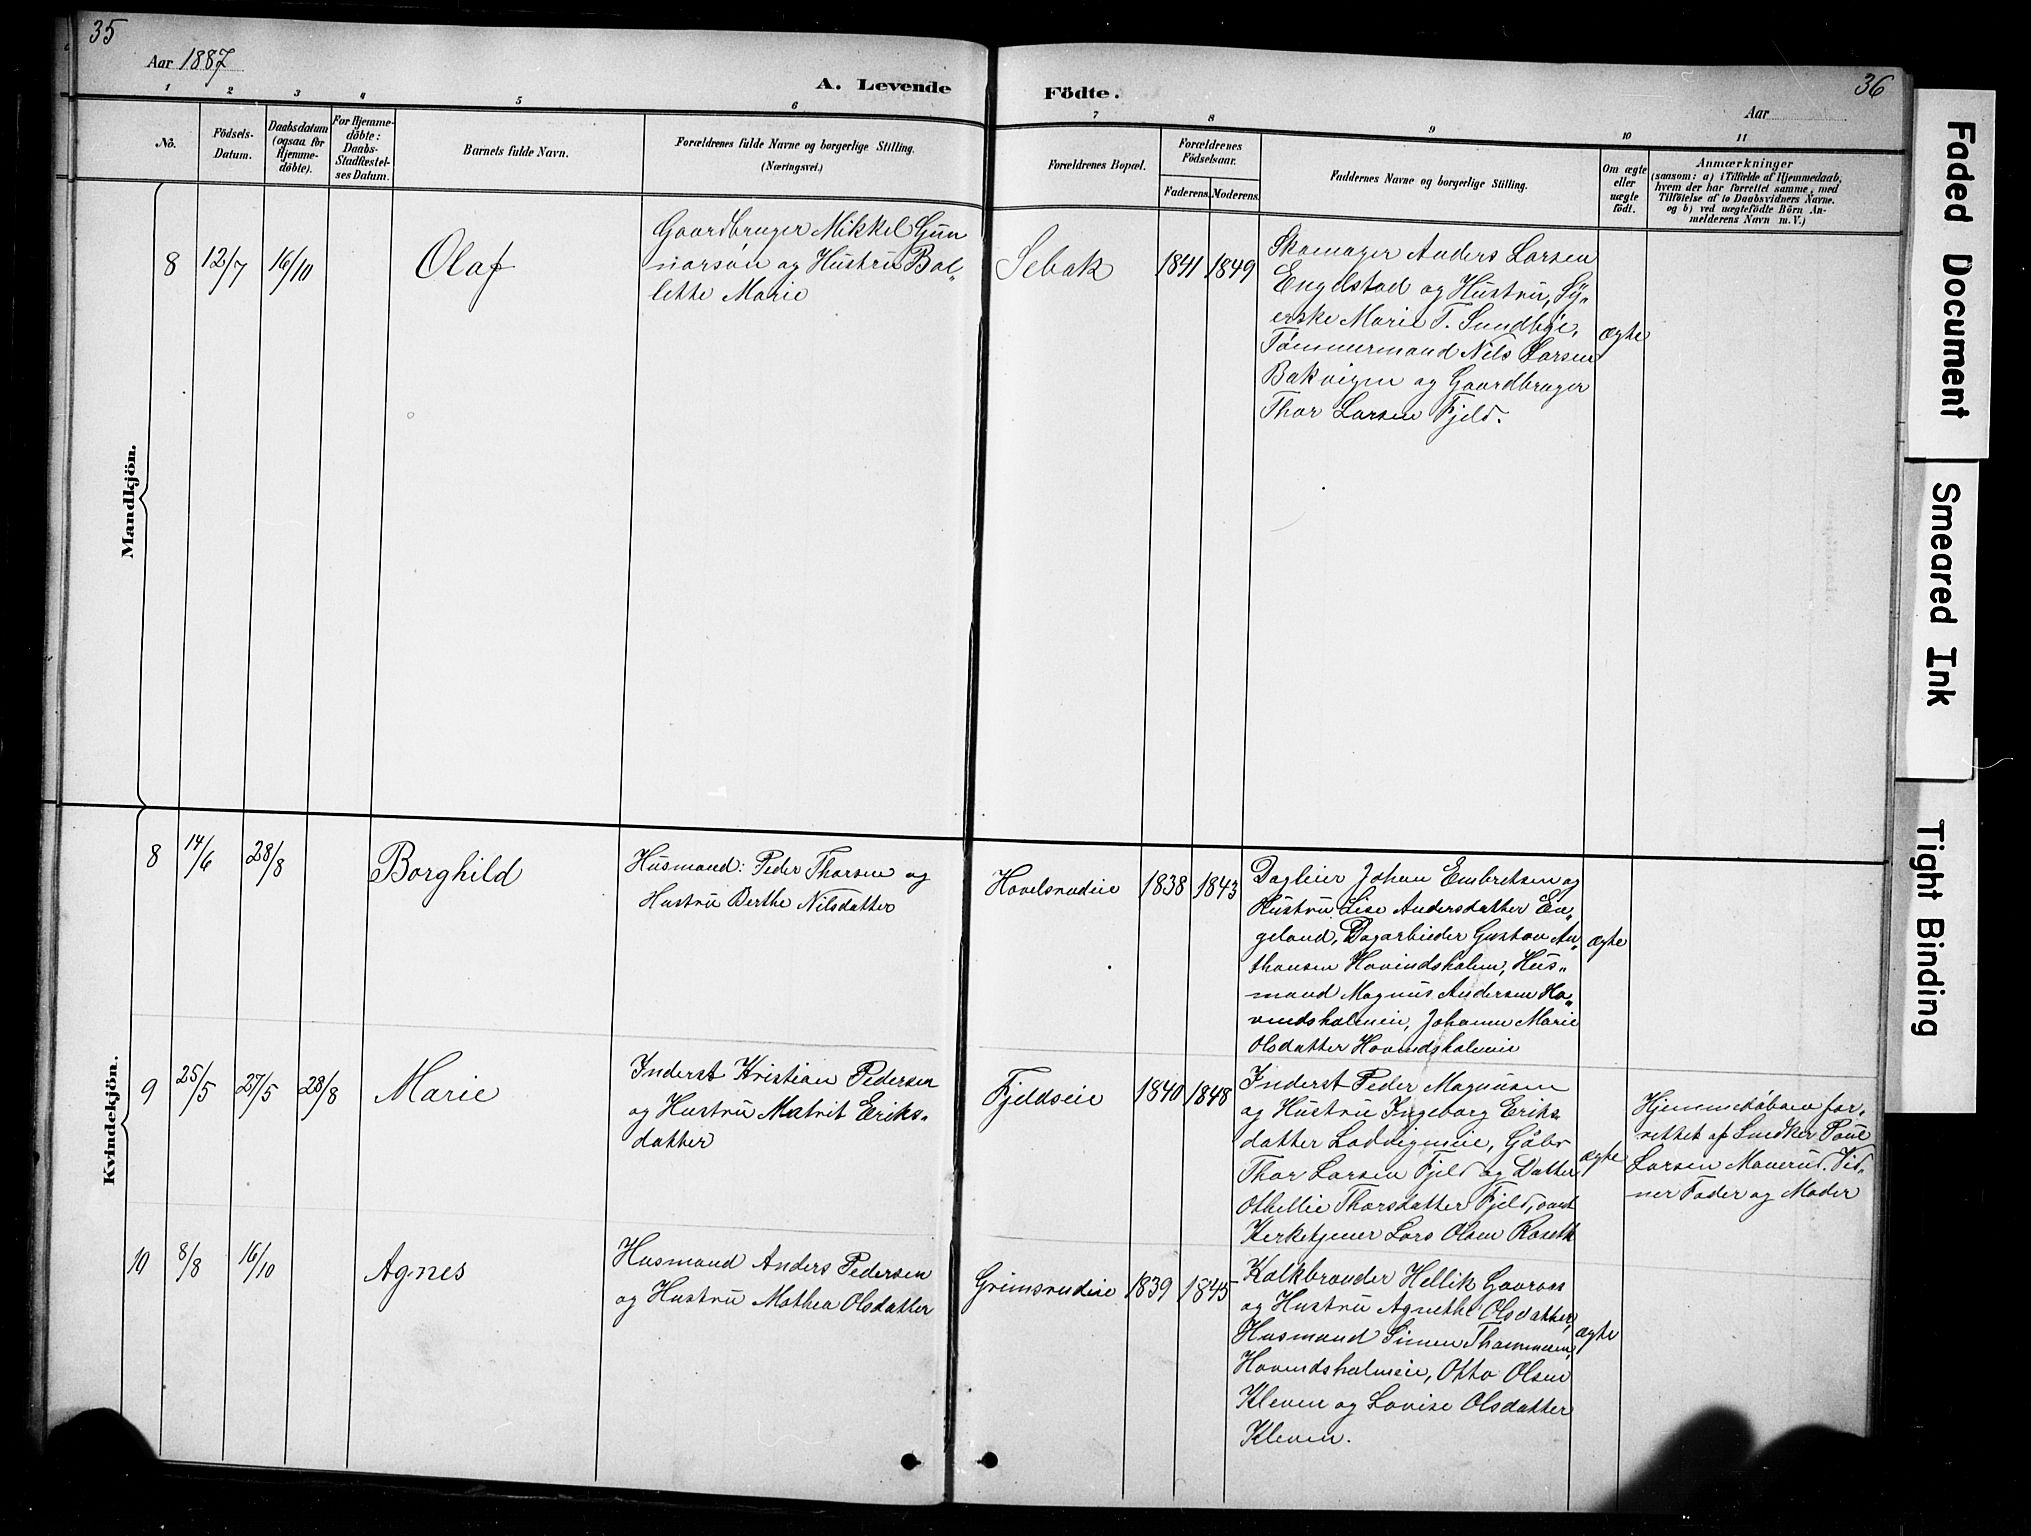 35
Aar 1887
A. Levende
Födte.
Aar
36
1 2 3 4 5 6 7 8 9 10 11
No.
Födsels-
Datum.
Daabsdatum
(ogsaa for
Hjemme-
döbte).
For Hjemme-
döbte:
Daabs-
Stadfæstel-
ses Datum.
Barnets fulde Navn.
Forældrenes fulde Navne og borgerlige Stilling.
(Næringsvei.)
Forældrenes Bopæl.
Forældrenes
Födselsaar.
Faderens. Moderens.
Faddernes Navne og borgerlige Stilling.
Om ægte
eller
uægte
født.
Anmærkninger
(saasom: a) i Tilfælde af Hjemmedaab,
hvem der har forrettet samme, med
Tilföielse af to Daabsvidners Navne.
og b) ved uægtefödte Börn An-
melderens Navn m. V.)
Mandkjön.
8
12/7
16/10
Olaf
Gaardbruger Mikkel Gun
narsøn og Hustru Bol-
lette Marie
Sebak
1841
1849
Skomager Anders Larsen
Engelstad og Hustru, Sÿ-
erske Marie T. Sundbÿe,
Tømmermand Nils Larsen
Bakvigen og Gaardbruger
Thor Larsen Fjeld.
ægte
Kvindekjön.
8
14/6
28/8
Borghild
Husmand: Peder Thorsen og
Hustru Berthe Nilsdatter
Hovelsrudeie
1838
1843
Dagleier Johan Embretsen og
Hustru Lise Andersdatter En-
geland, Dagarbieder Gustav An-
thonsen Hovindsholm, Hus-
mand Magnus Andersen Ho-
vindsholmeie, Johanne Marie
Olsdatter Hovindsholmeie
ægte
9
25/5
27/5
28/8
Marie
Inderst Kristian Pedersen
og Hustru Matrit Eriks-
datter
Fjeldseie
1840
1848
Inderst Peder Magnusen
og Hustru Ingeborg Eriks
datter Lodvigmeie, Gåbr
Thor Larsen Fjeld og Datter
Othellie Thorsdatter Fjeld, samt
Kirketjener Lars Olsen Roseth
ægte
Hjemmedåben for-
rettet af Snedker Poul
Larsen Maverud. Vid-
ner Fader og Moder
10
8/8
16/10
Agnes
Husmand Anders Pedersen
og Hustru Mathea Olsdatter
Grimsrudeie
1839
1845
Kalkbrænder Hellik Gaaraas
og Hustru Agnethe Olsdatter,
Husmand Simen Thommesen,
Hovindsholmeie, Otto Olsen
Kleven og Lovise Olsdatter
Kleven.
ægte
Faded Document
Smeared Ink
Tight Binding